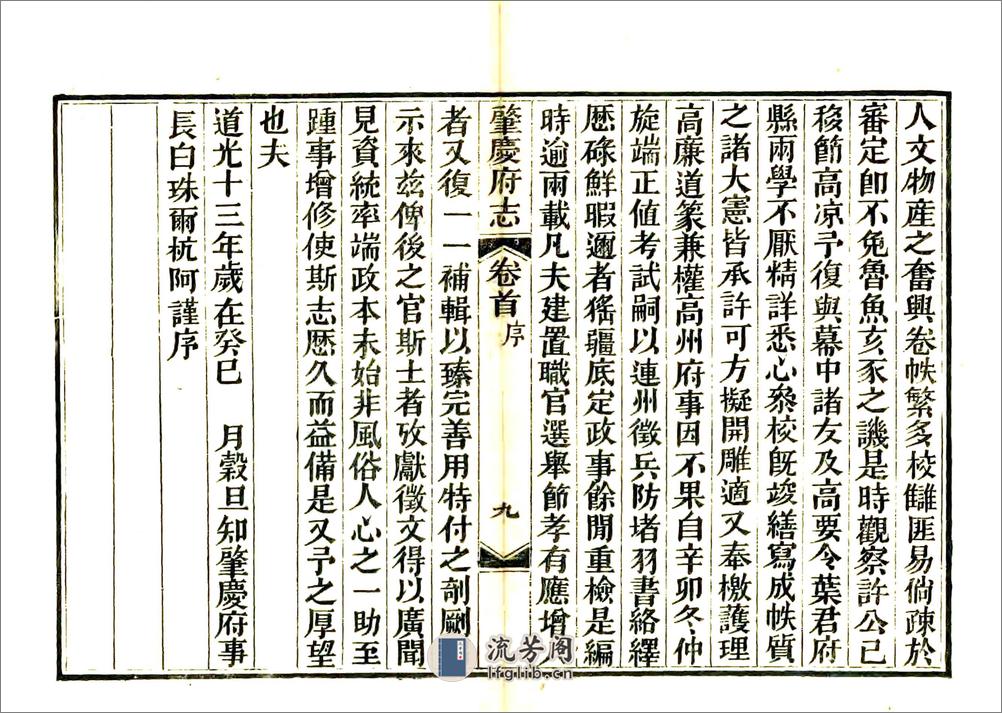 人文物產之奮興卷帙繁多校讎匪易倘疎於
審定卽不免魯魚亥豕之譏是時觀察許公已
移節高凉予復與幕中諸友及高要令葉君府
縣兩學不厭精詳悉心叅校旣竣繕寫成帙質
之諸大憲皆承許可方擬開雕適又奉檄護理
高廉道篆兼權高州府事因不果自辛卯冬仲
旋端正值考試嗣以連州徵兵防堵羽書絡繹
歷碌鮮暇邇者猺疆底定政事餘閒重檢是編
時逾兩載凡夫建置職官選舉節孝有應增
肇慶府志
卷首
序
九
者又復一一補輯以臻完善用特付之剞劂
示來茲俾後之官斯土者攷獻徵文得以廣聞
見資統率端政本未始非風俗人心之一助至
踵事增修使斯志歷久而益備是又予之厚望
也夫
道光十三年歲在癸巳 月穀旦知肇慶府事
長白珠爾杭阿謹序
流芳阁
lfglib.cn